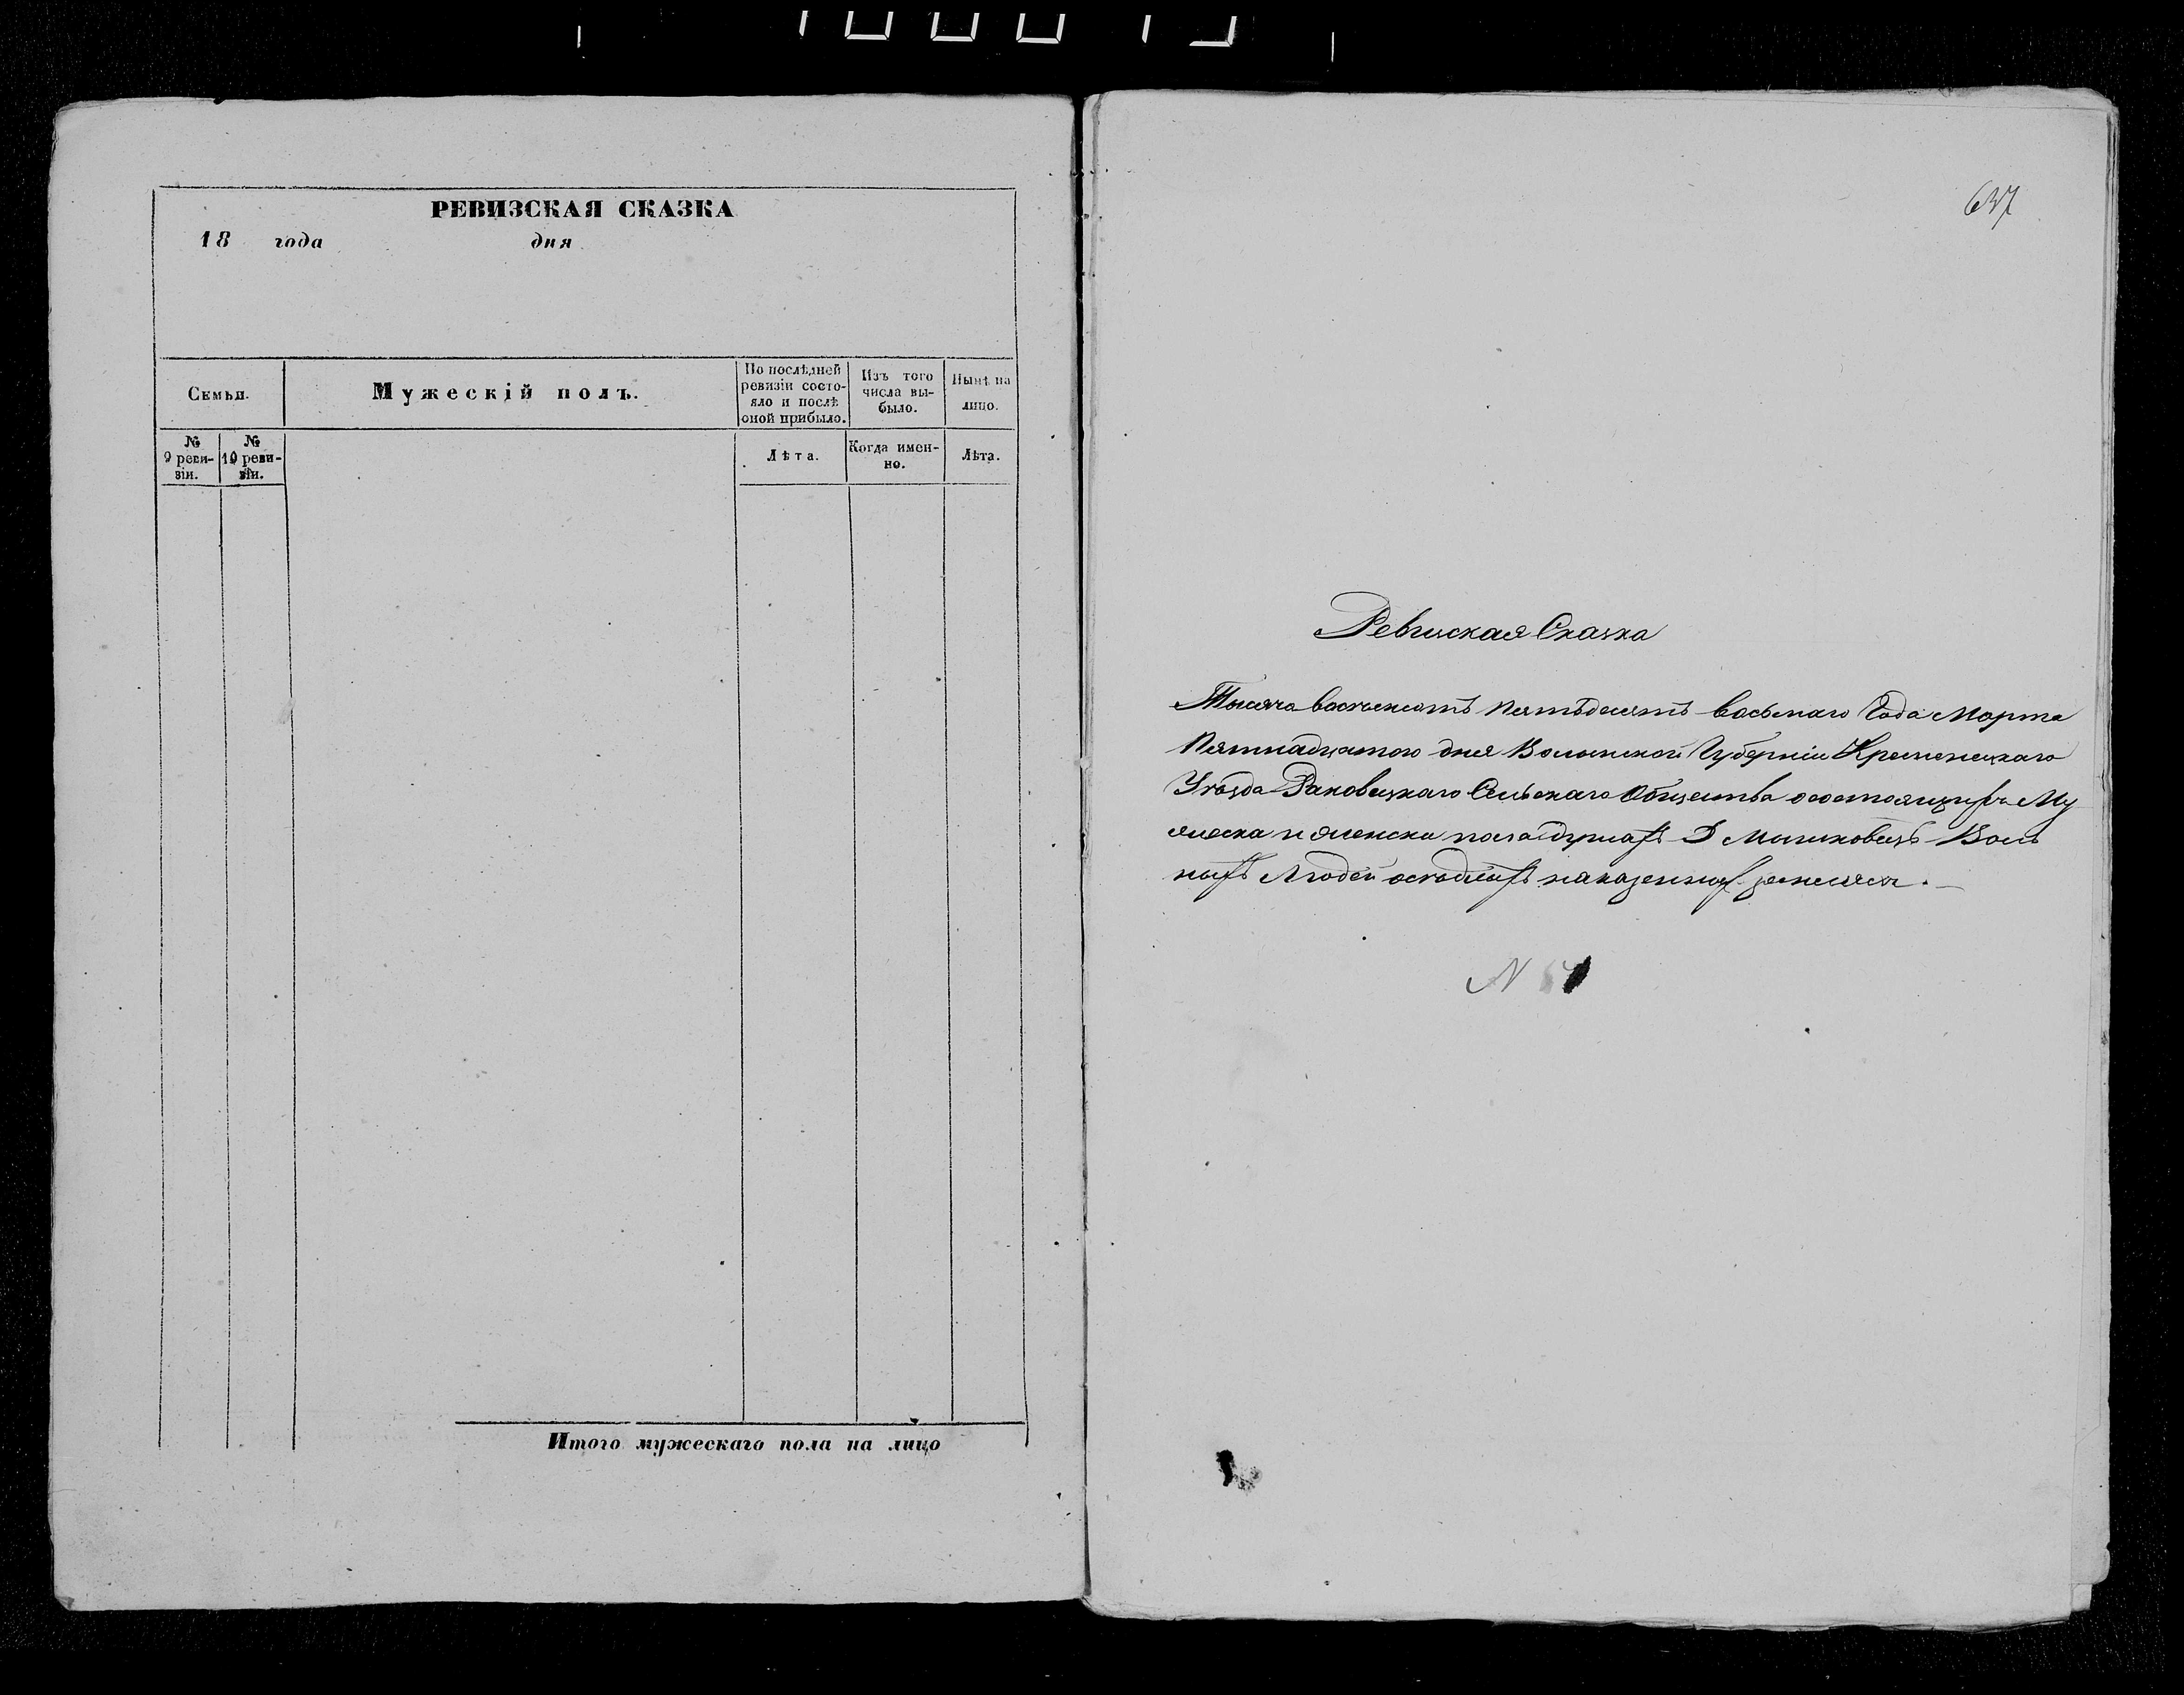 РЕВИЗСКАЯ СКАЗКА
18 года дня
Семьи.
Мужескій полъ.
По послѣдней ревизіи состо-
яло и послѣ оной прибыло.
Изъ того числа вы-
было.
Нынѣ на лицо.
№ 9 реви-
зіи.
№ 10 реви-
зіи.
Лѣта.
Когда имен-
но.
Лѣта.
Итого мужескаго пола на лицо
637
Ревизская Сказка
Тысяча восемьсотъ пятьдесятъ восьмаго Года Марта
Пятнадцатого дня Волынской Губерніи Кременецкаго
Уѣзда Раковецкаго Сельскаго Общества о состоящихъ Му
жеска и женска пола душахъ Д Мышковецъ Воль
ныхъ Людей осѣдлыхъ на казенныхъ земляхъ.
N